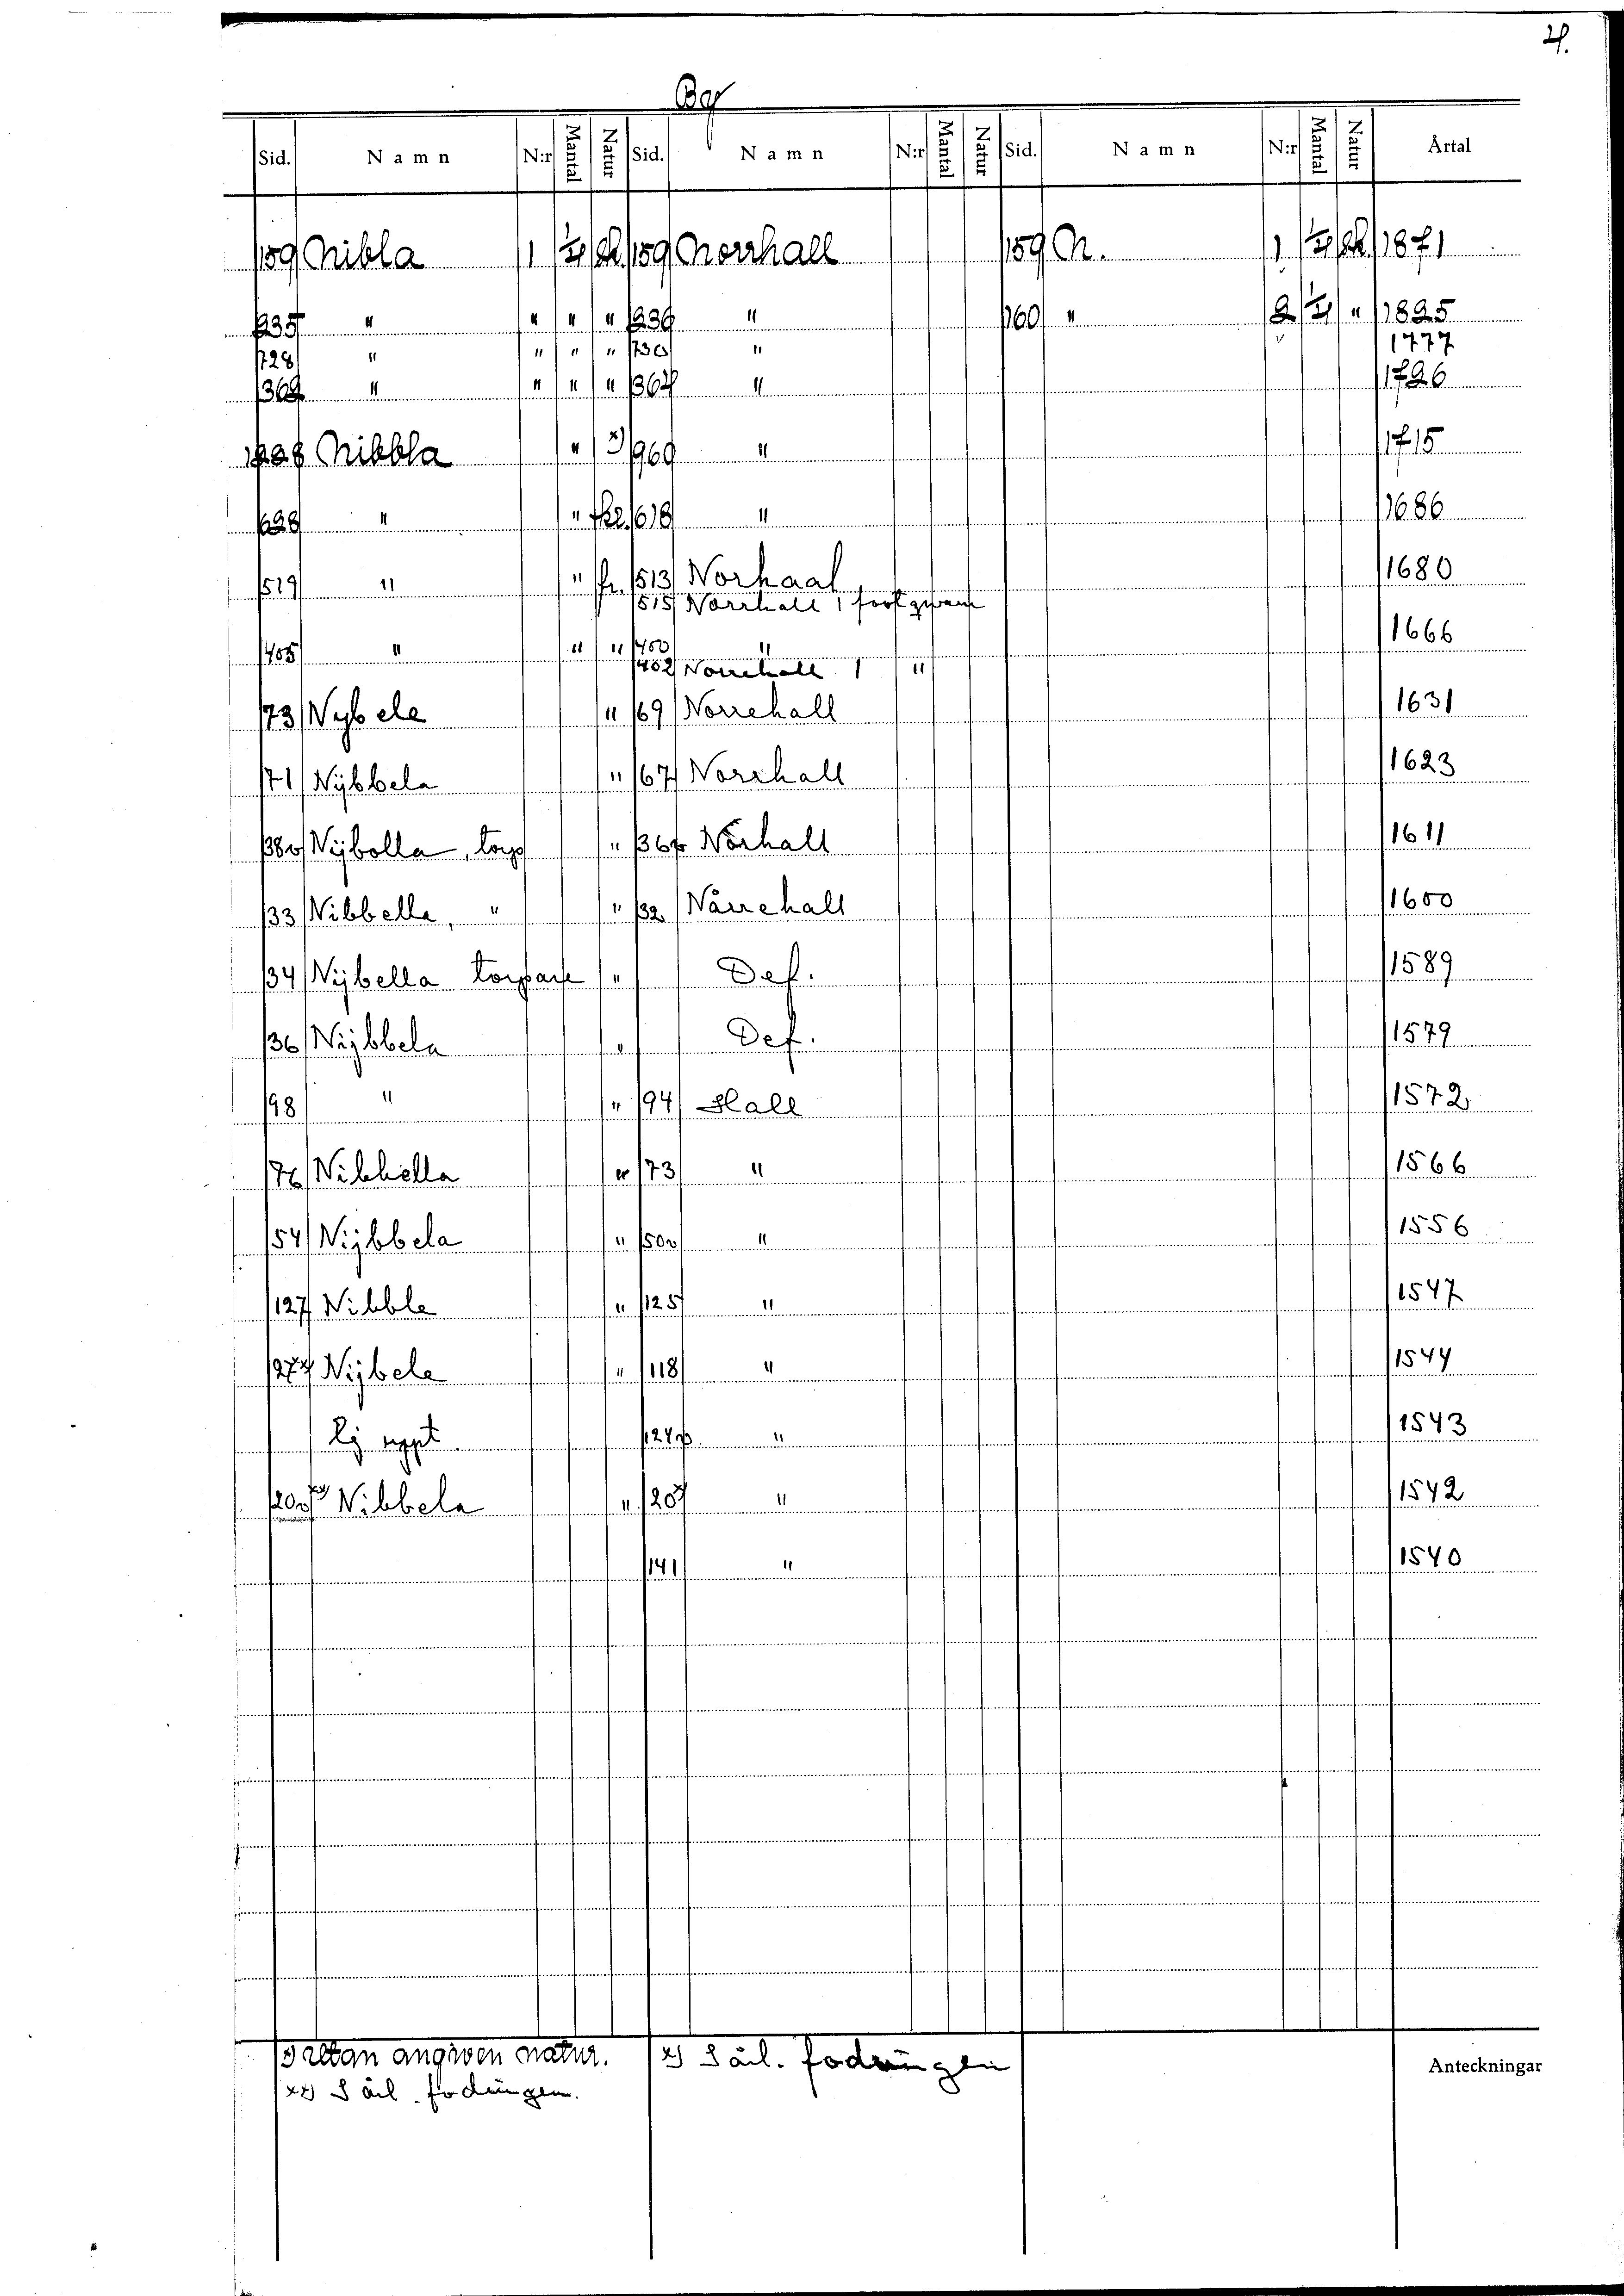 4.
By
Sid. Namn N:r Mantal Natur Sid. Namn N:r Mantal Natur Sid. Namn N:r Mantal Natur Årtal
159 Nibla 1 1/4 sk. 159 Norrhall 159 N. 1 1/4 sk. 1871
235 " " " " 236 " 160 " 2 1/4 " 1825
728 " " " " 730 " 1777
362 " " " " 364 " 1726
1228 Nibbla " x) 960 " 1715
628 " " skr. 618 " 1686
519 " " fr. 513 Norhaal 1680
515 Norrhall 1
405 " " " 400 " 1666
402 Norrehall 1 "
73 Nybele " 69 Norrehall 1631
71 Nÿbbela " 67 Norrhall 1623
38v Nijbolla, torp " 36v Nörhall 1611
33 Nibbella, " " 32 Nårrehall 1600
34 Nijbella torpare " Def. 1589
36 Nijbbela " Def. 1579
98 " " 94 Hall 1572
76 Nibbella " 73 " 1566
54 Nijbbela " 50v " 1556
127 Nibble " 125 " 1547
27x) Nijbele " 118 " 1544
Ej uppt. 124v " 1543
20v xx) Nibbela " 20x) " 1542
141 " 1540
x) utan angiven natur. x) Säl. fodringen Anteckningar
xx) Säl. fodringen.